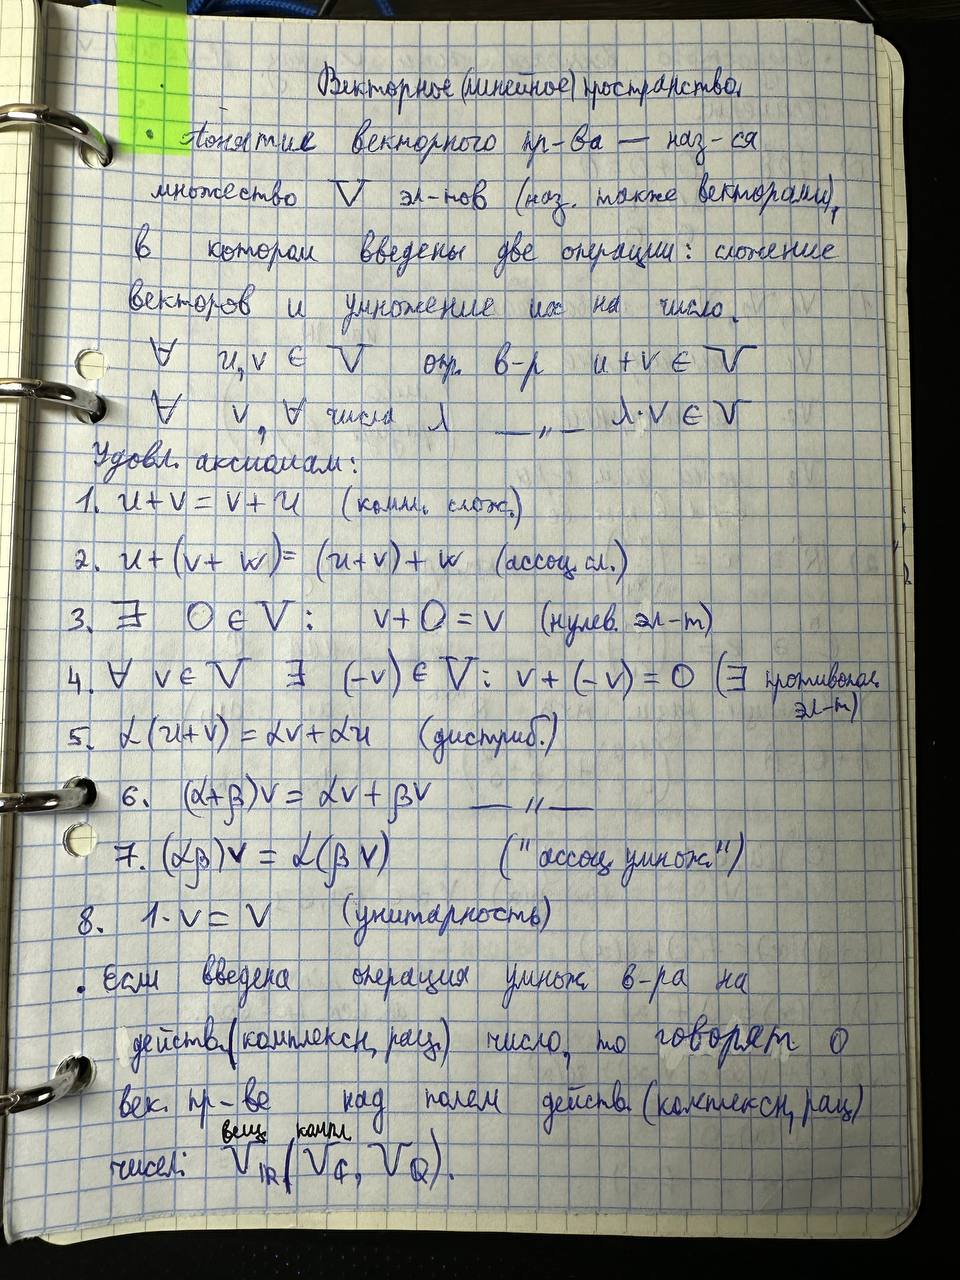 Векторное (линейное) пространство.
• Понятие векторного пр-ва — наз-ся
множество V эл-тов (наз. также векторами),
в котором введены две операции: сложение
векторов и умножение их на число.
∀ u, v ∈ V опр. в-р u + v ∈ V
∀ v, ∀ числа λ —„— λ·v ∈ V
Удовл. аксиомам:
1. u + v = v + u (комм. слож.)
2. u + (v + w) = (u + v) + w (ассоц. сл.)
3. ∃ O ∈ V : v + O = v (нулев. эл-т)
4. ∀ v ∈ V ∃ (-v) ∈ V : v + (-v) = O (∃ противопол.
эл-т)
5. α(u + v) = αv + αu (дистриб.)
6. (α + β)v = αv + βv —„—
7. (αβ)v = α(βv) ("ассоц. умнож.")
8. 1·v = v (унитарность)
• Если введена операция умнож. в-ра на
действ. (комплексн, рац.) число, то говорят о
век. пр-ве над полем действ. (комплексн, рац)
вещ. компл.
чисел: Vℝ (Vℂ, Vℚ).